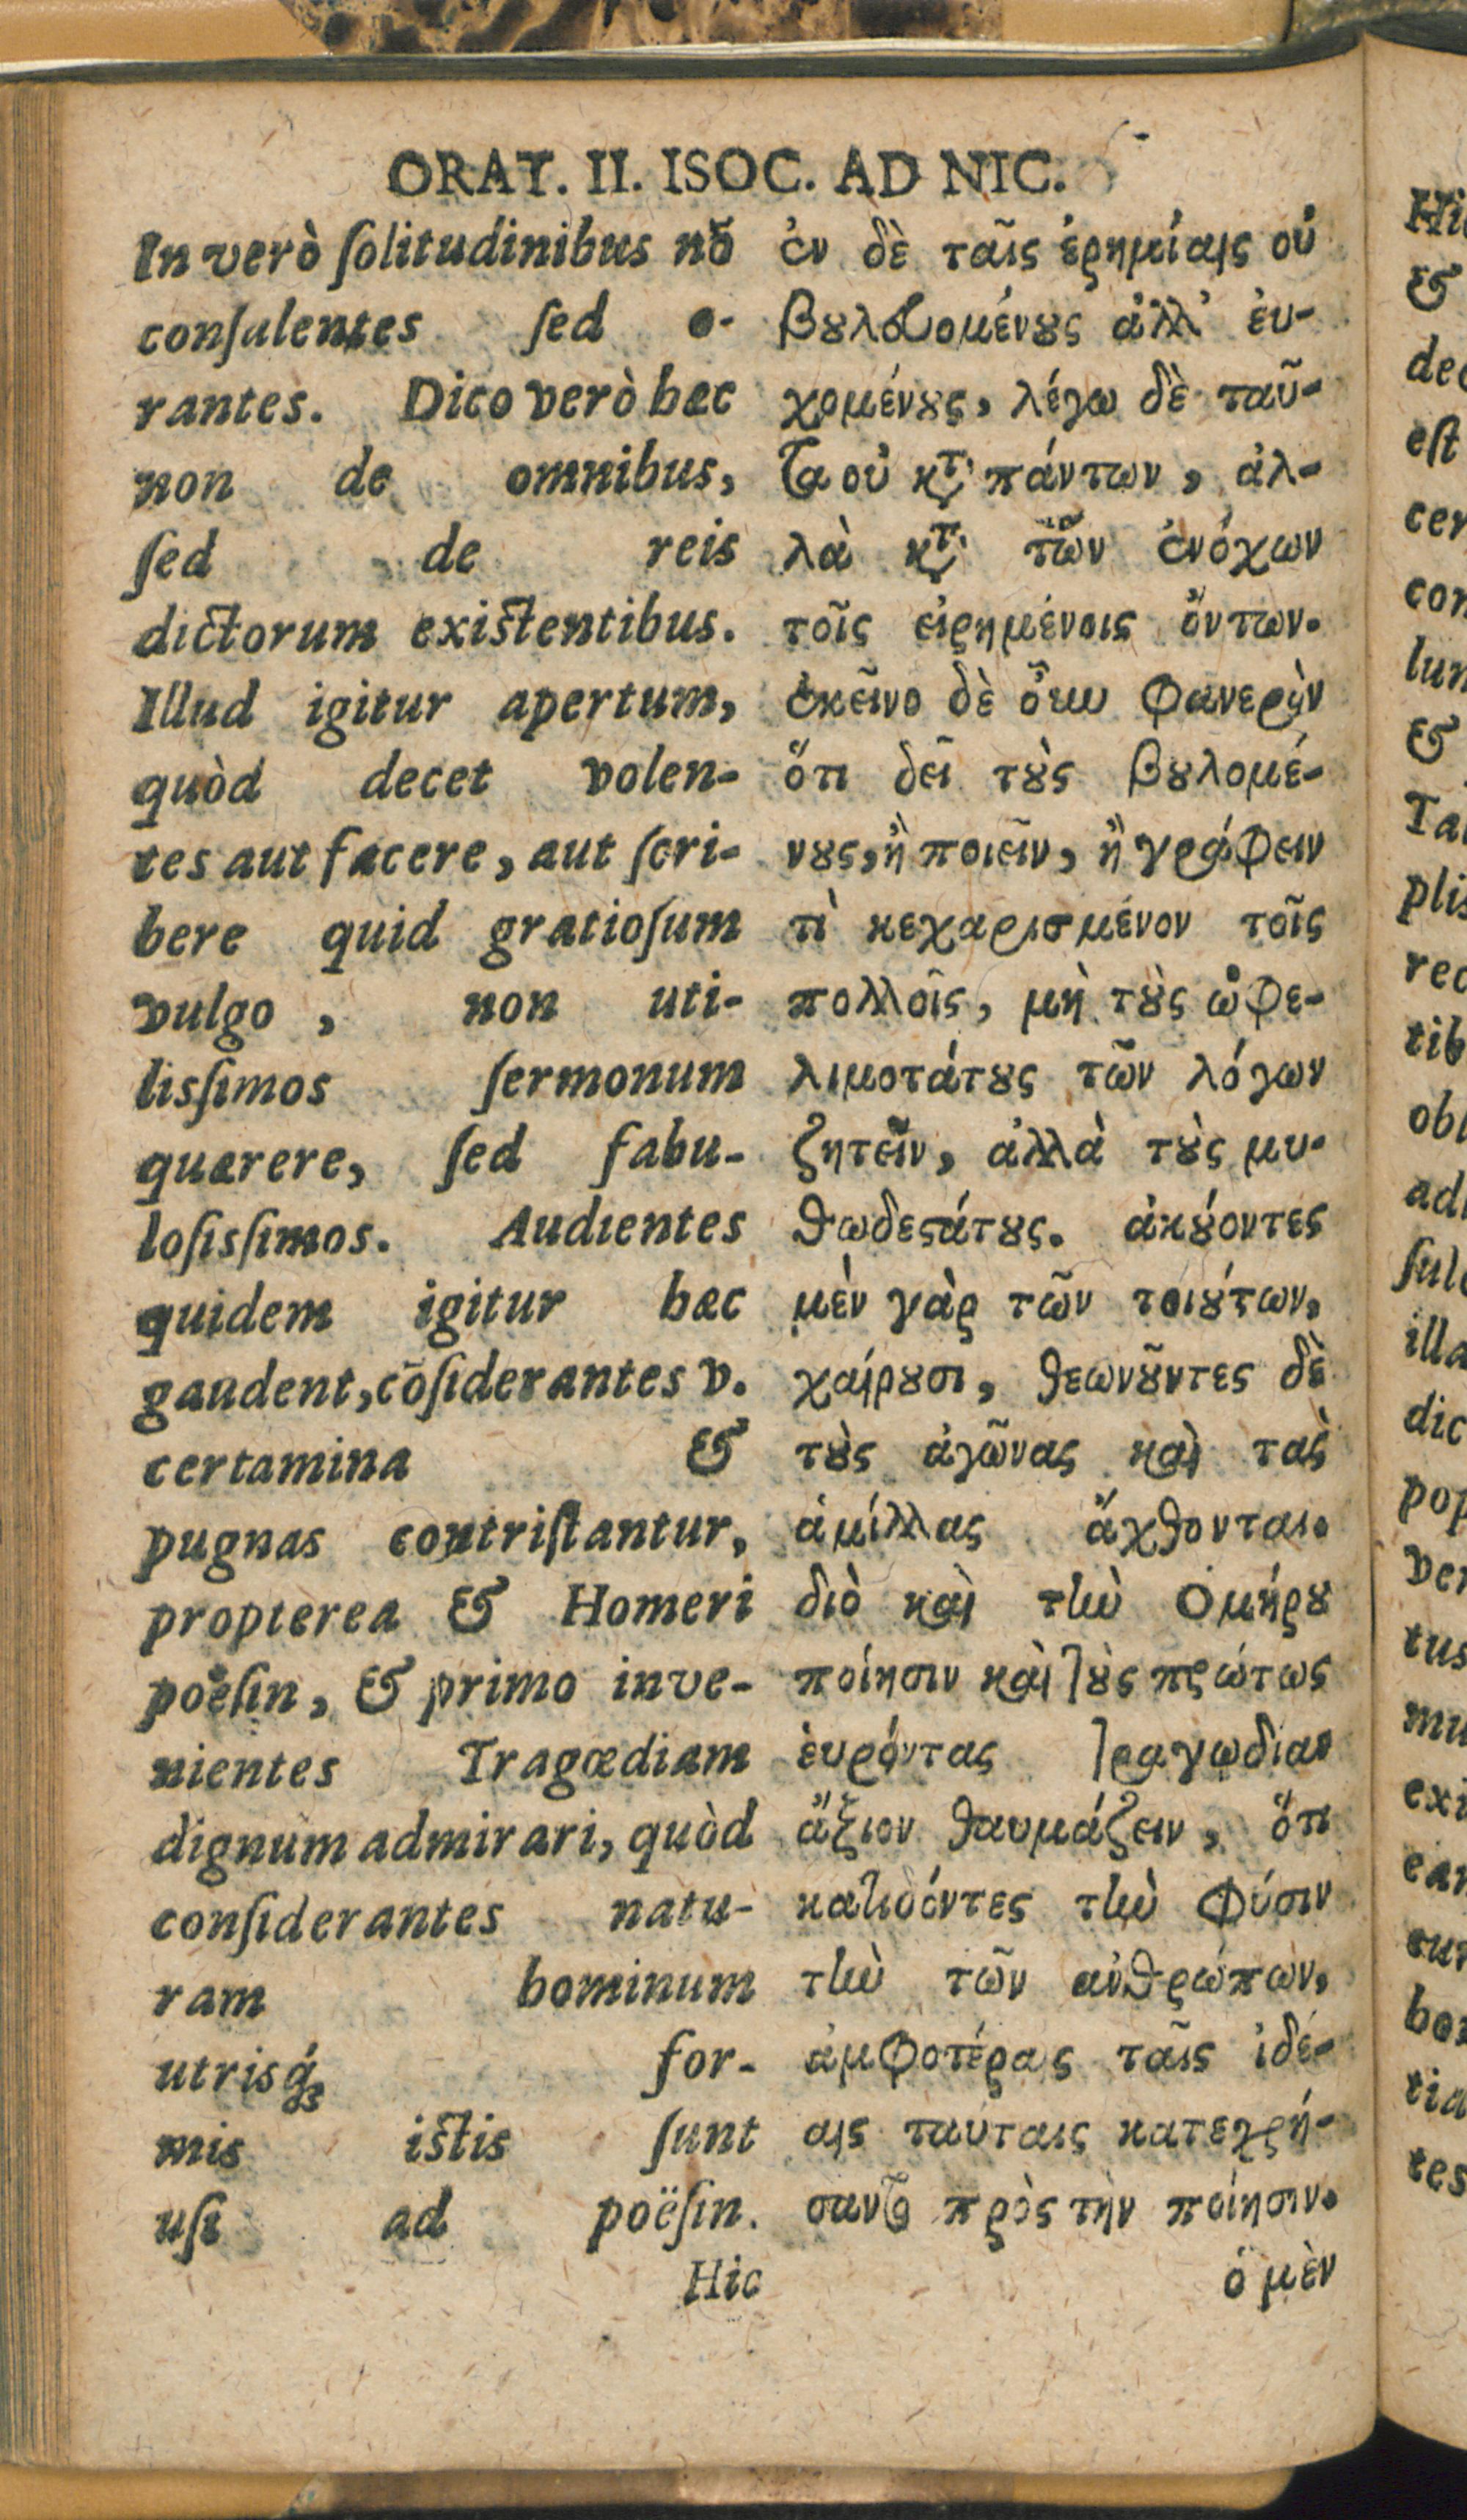 ORAT. II. ISOC. AD NIC.
In verò ſolitudinibus nō
conſulentes ſed o-
rantes. Dico verò hæc
non de omnibus,
ſed de reis
dictorum existentibus.
Illud igitur apertum,
quòd decet volen-
tes aut facere, aut ſcri-
bere quid gratioſum
vulgo, non uti-
lisſimos ſermonum
quærere, ſed fabu-
loſisſimos. Audientes
quidem igitur hæc
gaudent, cōſiderantes v.
certamina &
pugnas contriſtantur,
propterea & Homeri
poëſin, & primo inve-
nientes Tragœdiam
dignum admirari, quòd
conſiderantes natu-
ram hominum
utrisq́; for-
mis istis ſunt
uſi ad poëſin.
Hic
ἐν δὲ ταῖς ἐρημίαις οὐ
βȣλευομένȣς ἀλλ' εὐ-
χομένȣς, λέγω δὲ ταῦ-
τα οὐ κτ' πάντων, ἀλ-
λὰ κτ' τῶν ἐνόχων
τοῖς εἰρημένοις ὄντων.
ἐκεῖνο δὲ ὄυν φανερὸν
ὅτι δεῖ τȣ̀ς βȣλομέ-
νȣς, ἢ ποιεῖν, ἢ γράφειν
τὶ κεχαρισμένον τοῖς
πολλοῖς, μὴ τȣ̀ς ὠφε-
λιμοτάτȣς τῶν λόγων
ζητεῖν, ἀλλὰ τȣ̀ς μυ-
θωδεϛάτȣς. ἀκȣ́οντες
μὲν γὰρ τῶν τοιȣ́των,
χαίρȣσι, θεωνȣ͂ντες δὲ
τȣ̀ς ἀγῶνας καὶ τὰς
ἁμίλλας ἄχθονται.
διὸ καὶ τὴν Ὁμήρȣ
ποίησιν καὶ τȣ̀ς πρώτως
ἑυρόντας τραγωδίαν
ἄξιον θαυμάζειν, ὅτι
κατιδόντες τὴν φύσιν
τὴν τῶν ἀνθρώπων,
ἀμφοτέραις ταῖς ἰδέ-
αις ταύταις κατεχρή-
σαντο πρὸς τὴν ποίησιν.
ὁ μὲν